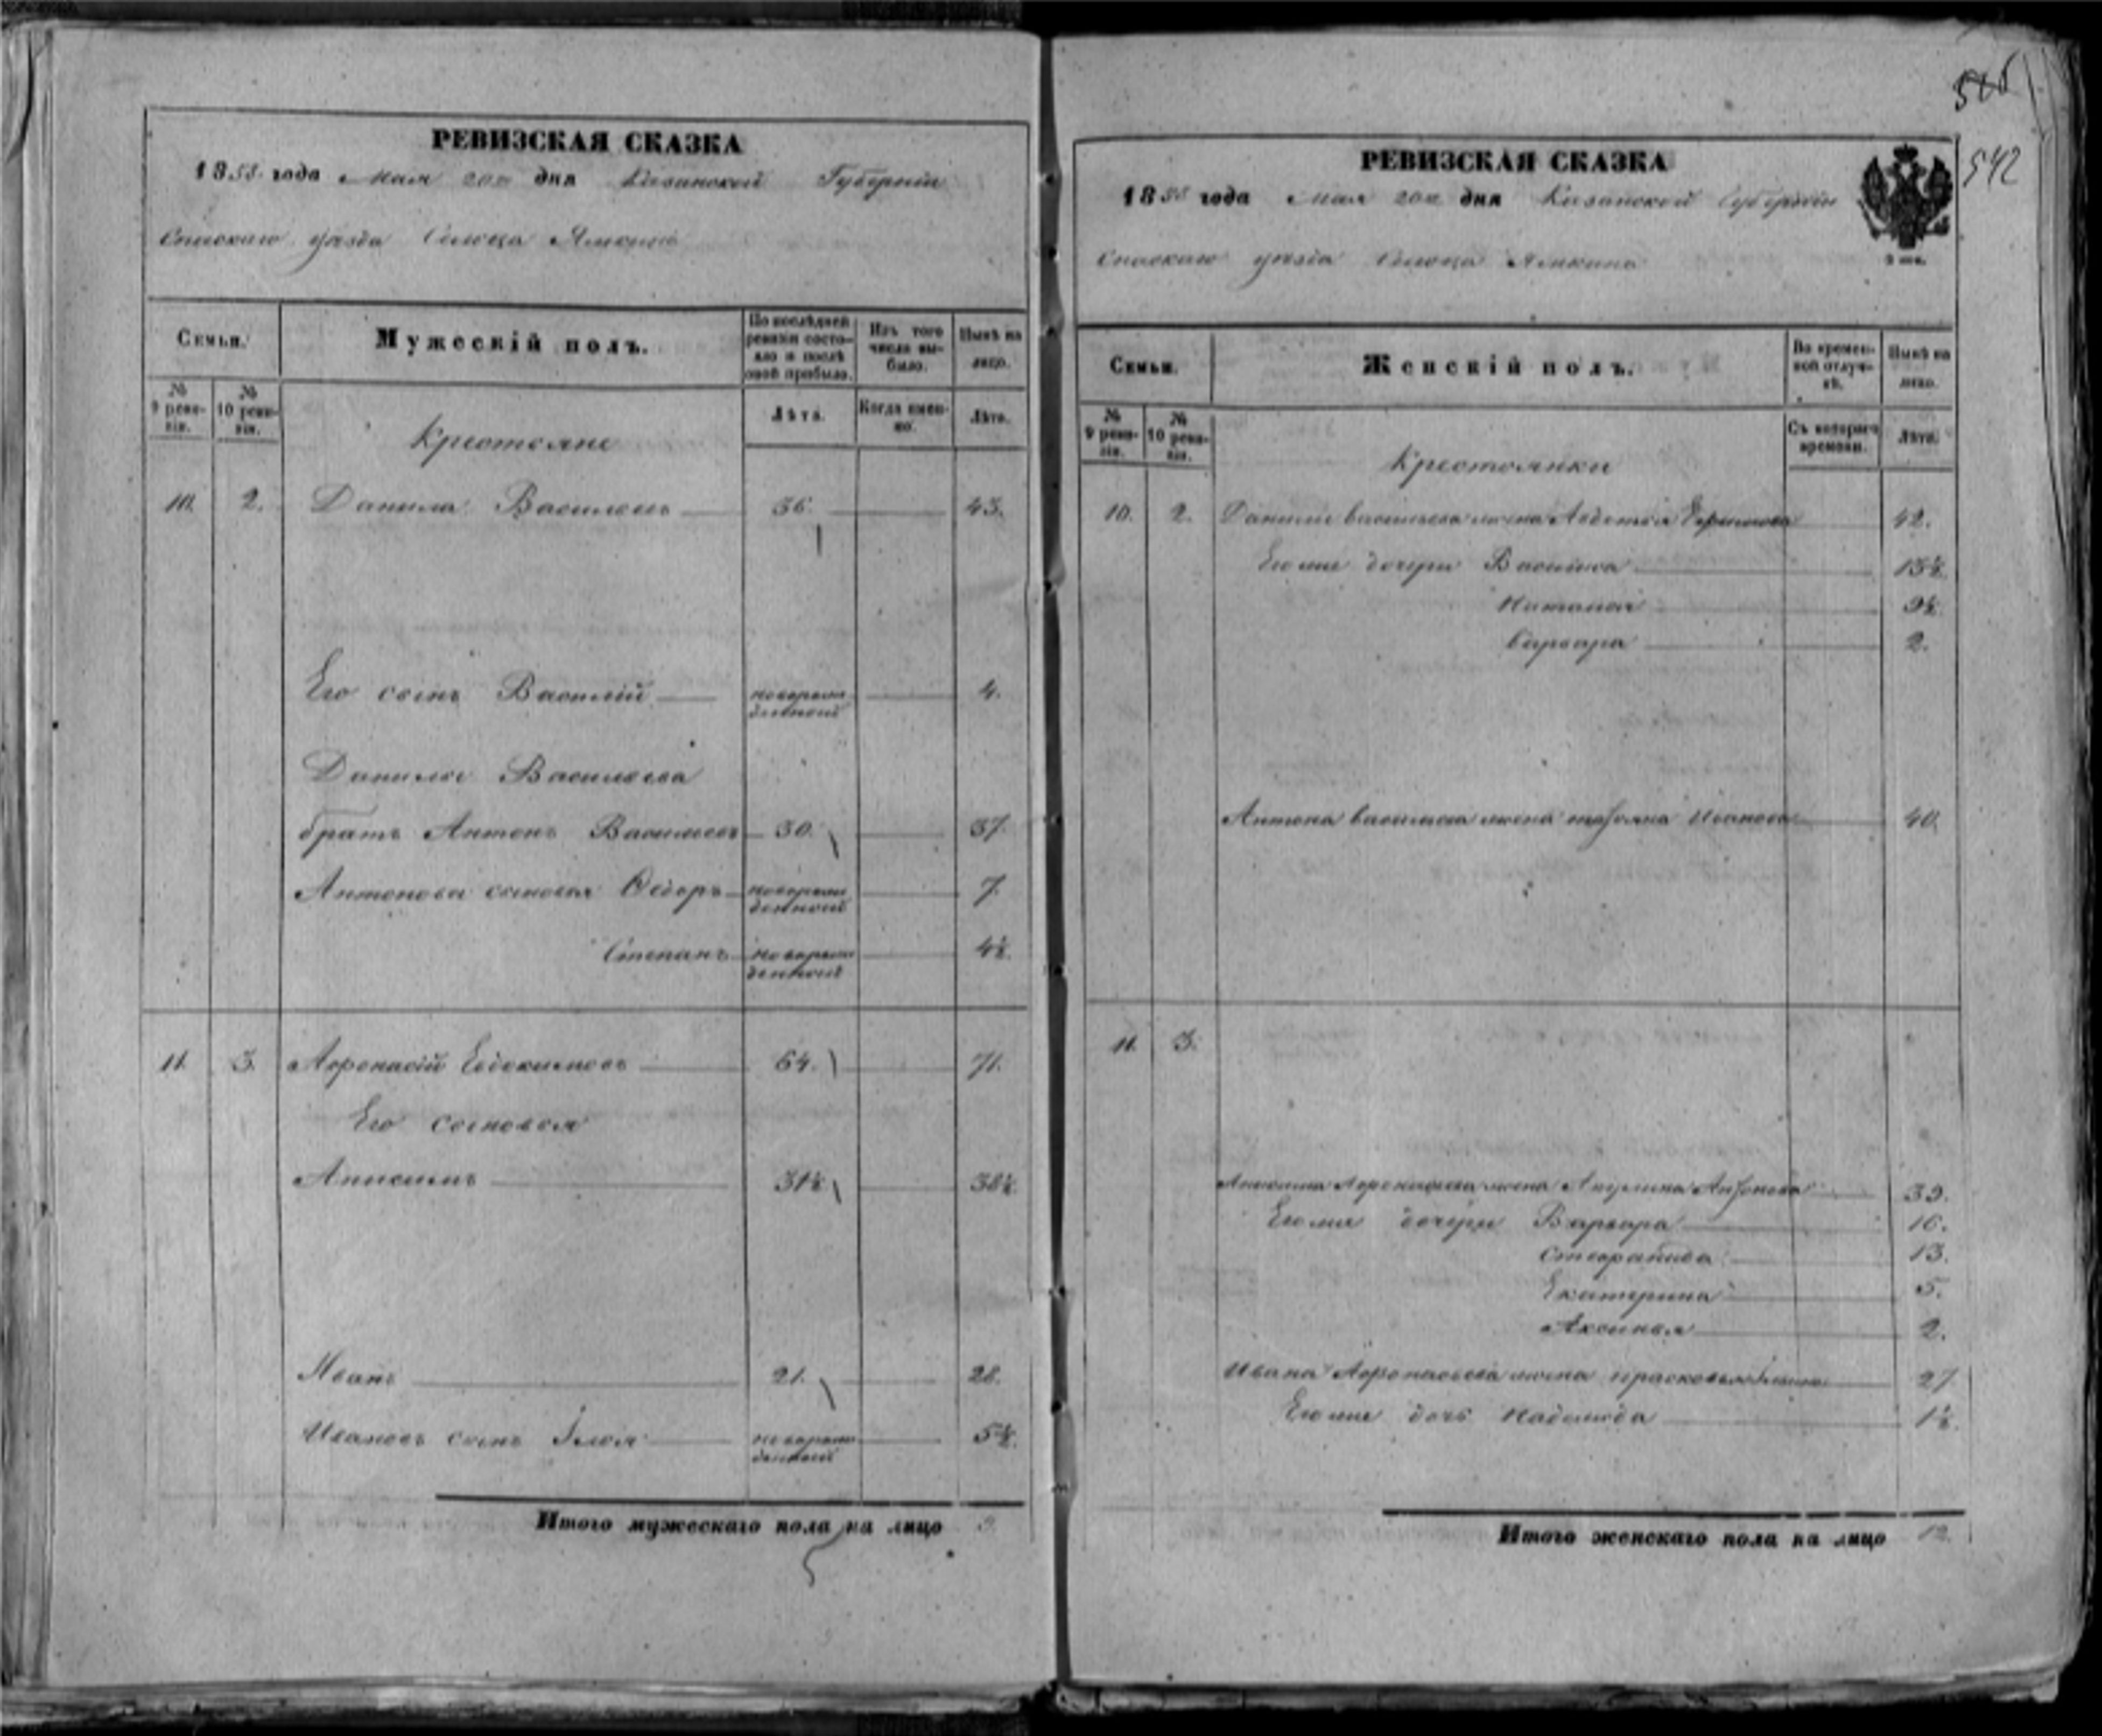 РЕВИЗСКАЯ СКАЗКА
1858 года Мая 20го дня Казанской Губернiи
Спаскаго уѣзда Сельца Ямкина
Семьи.
Мужескiй полъ.
По послѣдней ревизiи состояло и послѣ оной прибыло.
Изъ того числа выбыло.
Нынѣ на лицо.
№ 9 ревизiи.
№ 10 ревизiи.
Лѣта.
Когда именно.
Лѣта.
Крестьяне
10. 2. Данила Васильевъ 36. 43.
Его сынъ Василiй новорожденный 4.
Данилы Васильева
братъ Антонъ Васильевъ 30. 37.
Антоновы сыновья Ѳедоръ новорожденный 7.
Степанъ новорожденный 4½.
11. 3. Афонасiй Евдокимовъ 64. 71.
Его сыновья
Анисимъ 31½ 38½.
Иванъ 21. 28.
Ивановъ сынъ Илья новорожденный 5½.
Итого мужескаго пола на лицо 9.
546
542
РЕВИЗСКАЯ СКАЗКА
1858 года Мая 20го дня Казанской Губернiи
Спаскаго уѣзда Сельца Ямкина
Семьи.
Женскiй полъ.
Во временной отлучкѣ.
Нынѣ на лицо.
№ 9 ревизiи.
№ 10 ревизiи.
Съ котораго времени.
Лѣта.
Крестьянки
10. 2. Данилы Васильева жена Авдотья 42.
Его же дочери Василиса 15½.
Наталья 9½.
Варвара 2.
Антона Васильева жена Татьяна Иванова 40.
11. 3.
Анисима Афонасьева жена Акулина Антонова 39.
Его же дочери Варвара 16.
Стефанида 13.
Екатерина 5.
Аксинья 2.
Ивана Афонасьева жена Прасковья 27
Его же дочь Надежда 1½.
Итого женскаго пола на лицо 12.